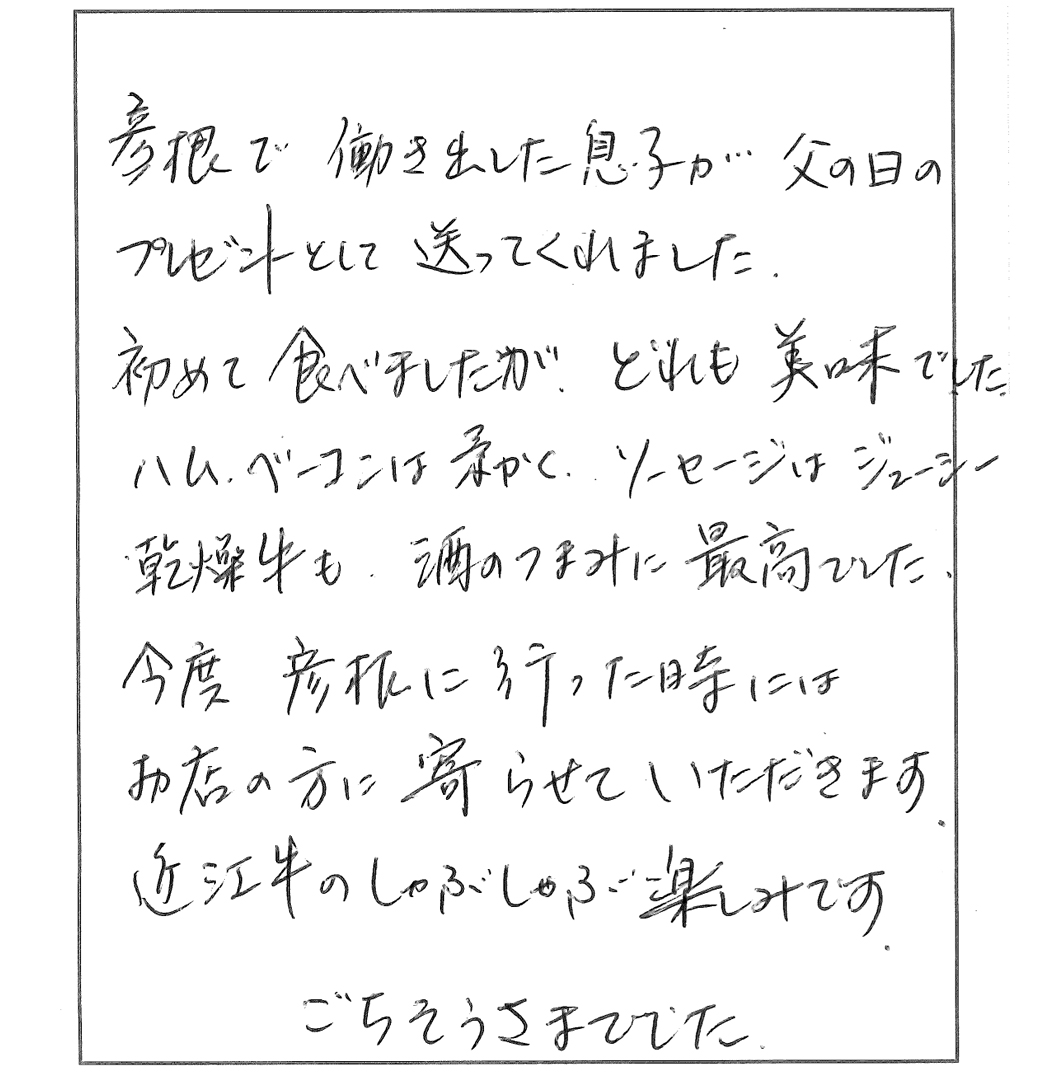 彦根で 働き出した息子が 父の日の
プレゼントとして 送ってくれました.
初めて 食べましたが、どれも 美味でした
ハム、ベーコンは柔かく、ソーセージは ジューシー
乾燥牛も、酒のつまみに 最高でした.
今度 彦根に 行った時には
お店の方に 寄らせていただきます.
近江牛のしゃぶしゃぶ 楽しみです.
ごちそうさまでした.